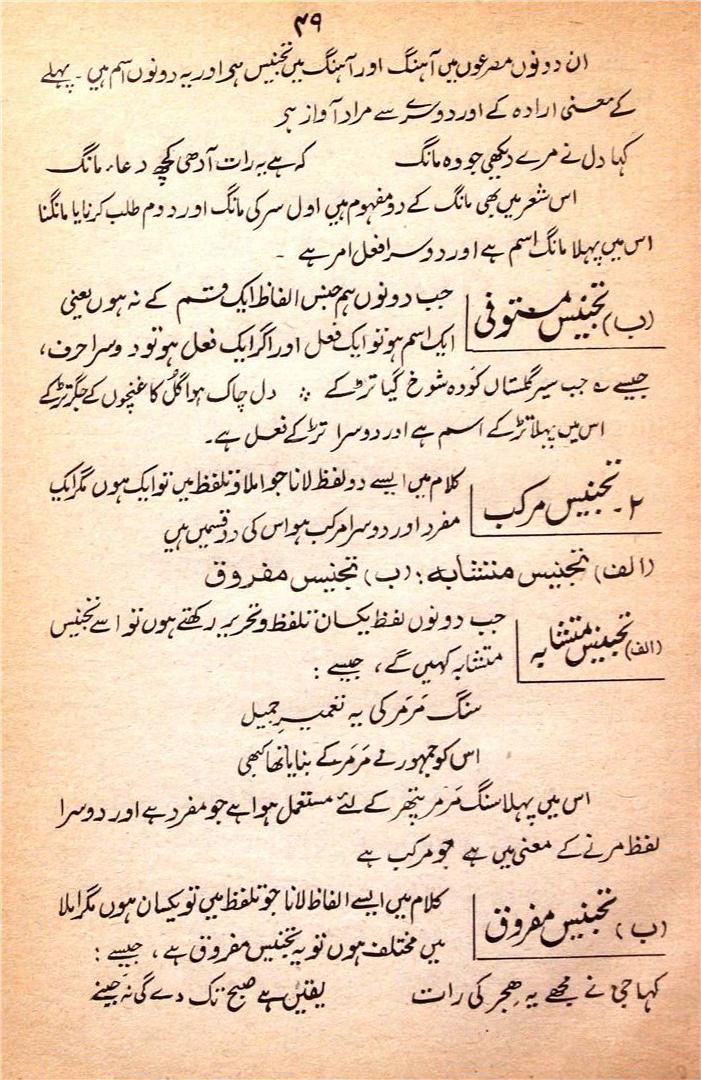 ۴۹
ان دونوں مصرعوں میں آہنگ اور آہنگ میں تجنیس ہے اور یہ دونوں اسم ہیں ۔ پہلے
کے معنی ارادہ کے اور دوسرے سے مراد آواز ہے
کہا دل نے مرے دیکھی جو وہ مانگ کہ ہے یہ رات آدھی کچھ دعاء مانگ
اس شعر میں بھی مانگ کے دو مفہوم ہیں اول سر کی مانگ اور دوم طلب کرنا یا مانگنا
اس میں پہلا مانگ اسم ہے اور دوسرا فعل امر ہے ۔
(ب) تجنیس مستوفی
جب دونوں ہم جنس الفاظ ایک قسم کے نہ ہوں یعنی
ایک اسم ہو تو ایک فعل اور اگر ایک فعل ہو تو دوسرا حرف،
جیسے ؎ جب سیر گلستاں کو وہ شوخ گیا تڑکے ؞ دل چاک ہوا گل کا غنچوں کے جگر تڑکے
اس میں پہلا تڑکے اسم ہے اور دوسرا تڑکے فعل ہے۔
۲۔ تجنیس مرکب
کلام میں ایسے دو لفظ لانا جو املا و تلفظ میں تو ایک ہوں مگر ایک
مفرد اور دوسرا مرکب ہو اس کی دو قسمیں ہیں
(الف) تجنیس متشابہ : (ب) تجنیس مفروق
(الف) تجنیس متشابہ
جب دونوں لفظ یکساں تلفظ و تحریر رکھتے ہوں تو اسے تجنیس
متشابہ کہیں گے، جیسے :
سنگ مَرمَر کی یہ تعمیرِ جمیل
اس کو جمہور نے مَر مَر کے بنایا تھا کبھی
اس میں پہلا سنگ مَرمَر پتھر کے لئے مستعمل ہوا ہے جو مفرد ہے اور دوسرا
لفظ مرنے کے معنی میں ہے جو مرکب ہے
(ب) تجنیس مفروق
کلام میں ایسے الفاظ لانا جو تلفظ میں تو یکساں ہوں مگر املا
میں مختلف ہوں تو یہ تجنیس مفروق ہے، جیسے :
کہا جی نے مجھے یہ ہجر کی رات یقیں ہے صبح تک دے گی نہ جینے